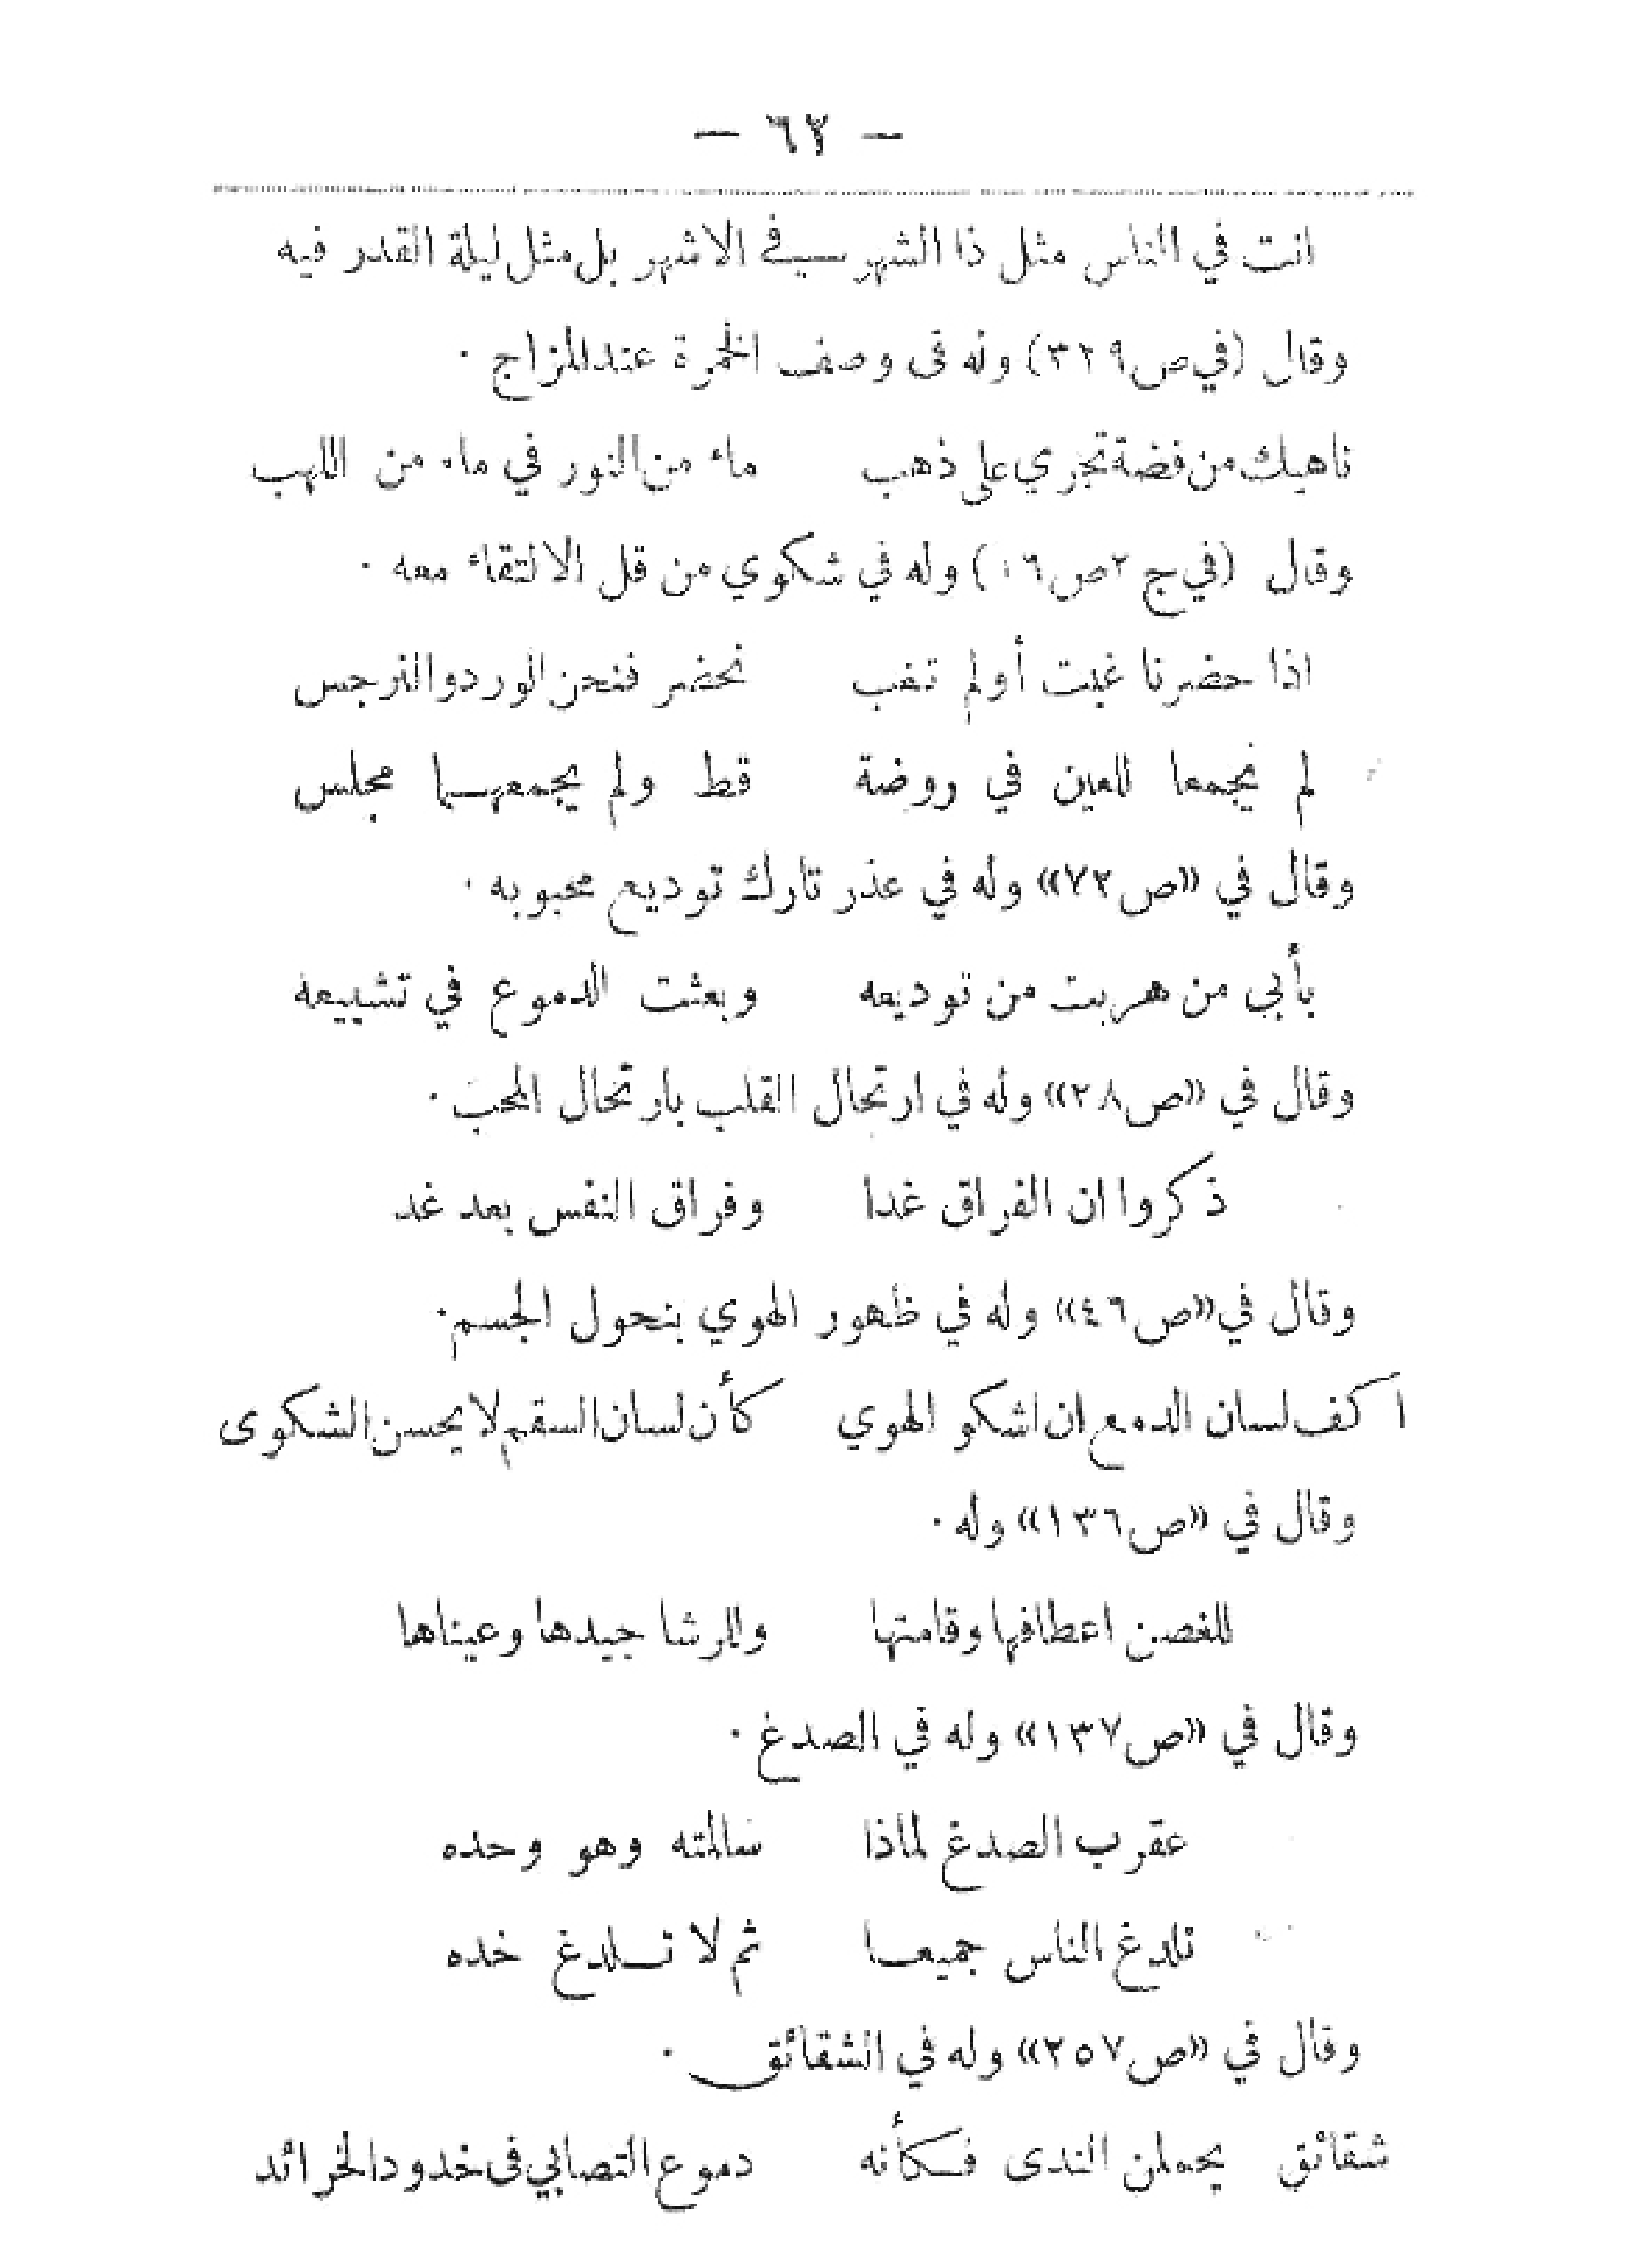 — ٦٢ —
انت في الناس مثل ذا الشهر في الاشهر بل مثل ليلة القدر فيه
وقال (في ص٣٢٩) وله فى وصف الخمرة عند المزاج ٠
ناهيك من فضة تجري على ذهب ماء من النور في ماء من اللهب
وقال (في ج ٢ص٠٦) وله في شكوي من قل الالتقاء معه ٠
اذا حضرنا غبت أولم تغب نحضر فنحن الورد والنرجس
لم نجمعا للعين في روضة قط ولم يجمعهما مجلس
وقال في «ص٧٢» وله في عذر تارك توديع محبوبه ٠
بأبي من هربت من توديعه وبعثت الدموع في تشييعه
وقال في «ص٢٨» وله في ارتحال القلب بارتحال المحب ٠
ذكروا ان الفراق غدا وفراق النفس بعد غد
وقال في «ص٤٦» وله في ظهور الهوي بنحول الجسم ٠
اكف لسان الدمع ان اشكو الهوي كأن لسان السقم لا يحسن الشكوى
وقال في «ص١٣٦» وله ٠
للغصن اعطافها وقامتها والرشا جيدها وعيناها
وقال في «ص١٣٧» وله في الصدغ ٠
عقرب الصدغ لماذا سالمته وهو وحده
تلدغ الناس جميعا ثم لا تلدغ خده
وقال في «ص٢٥٧» وله في الشقائق ٠
شقائق يحملن الندى فكأنه دموع التصابي فى خدود الخرائد